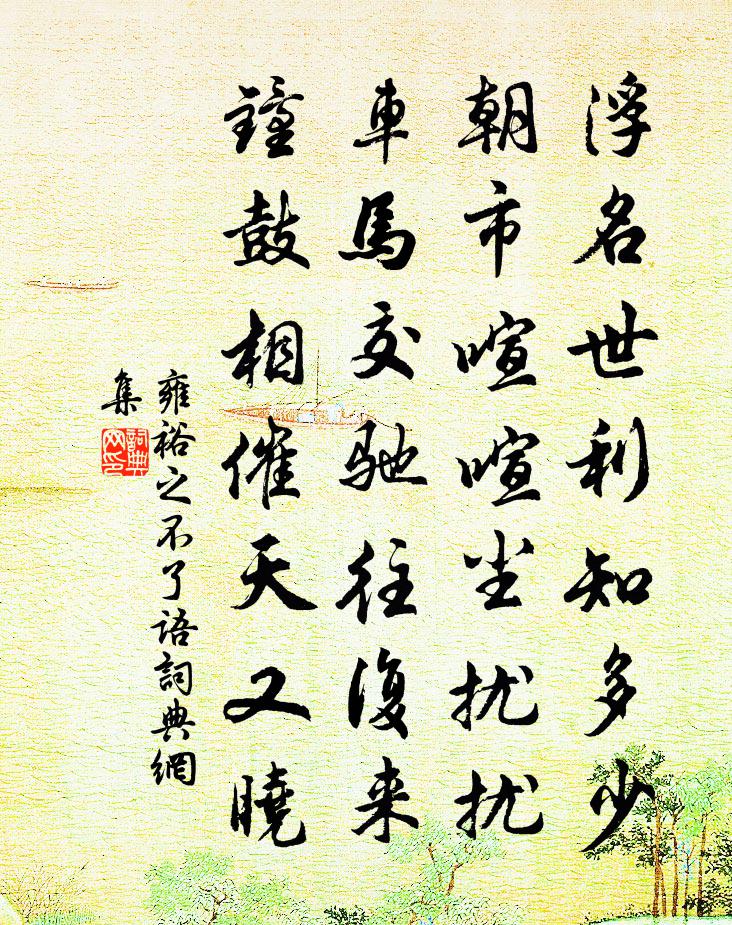 浮名世利知多少
朝市喧喧尘扰扰
車馬交驰往復来
鐘鼓相催天又曉
雍裕之不了語詞典網
集
詞典
网印